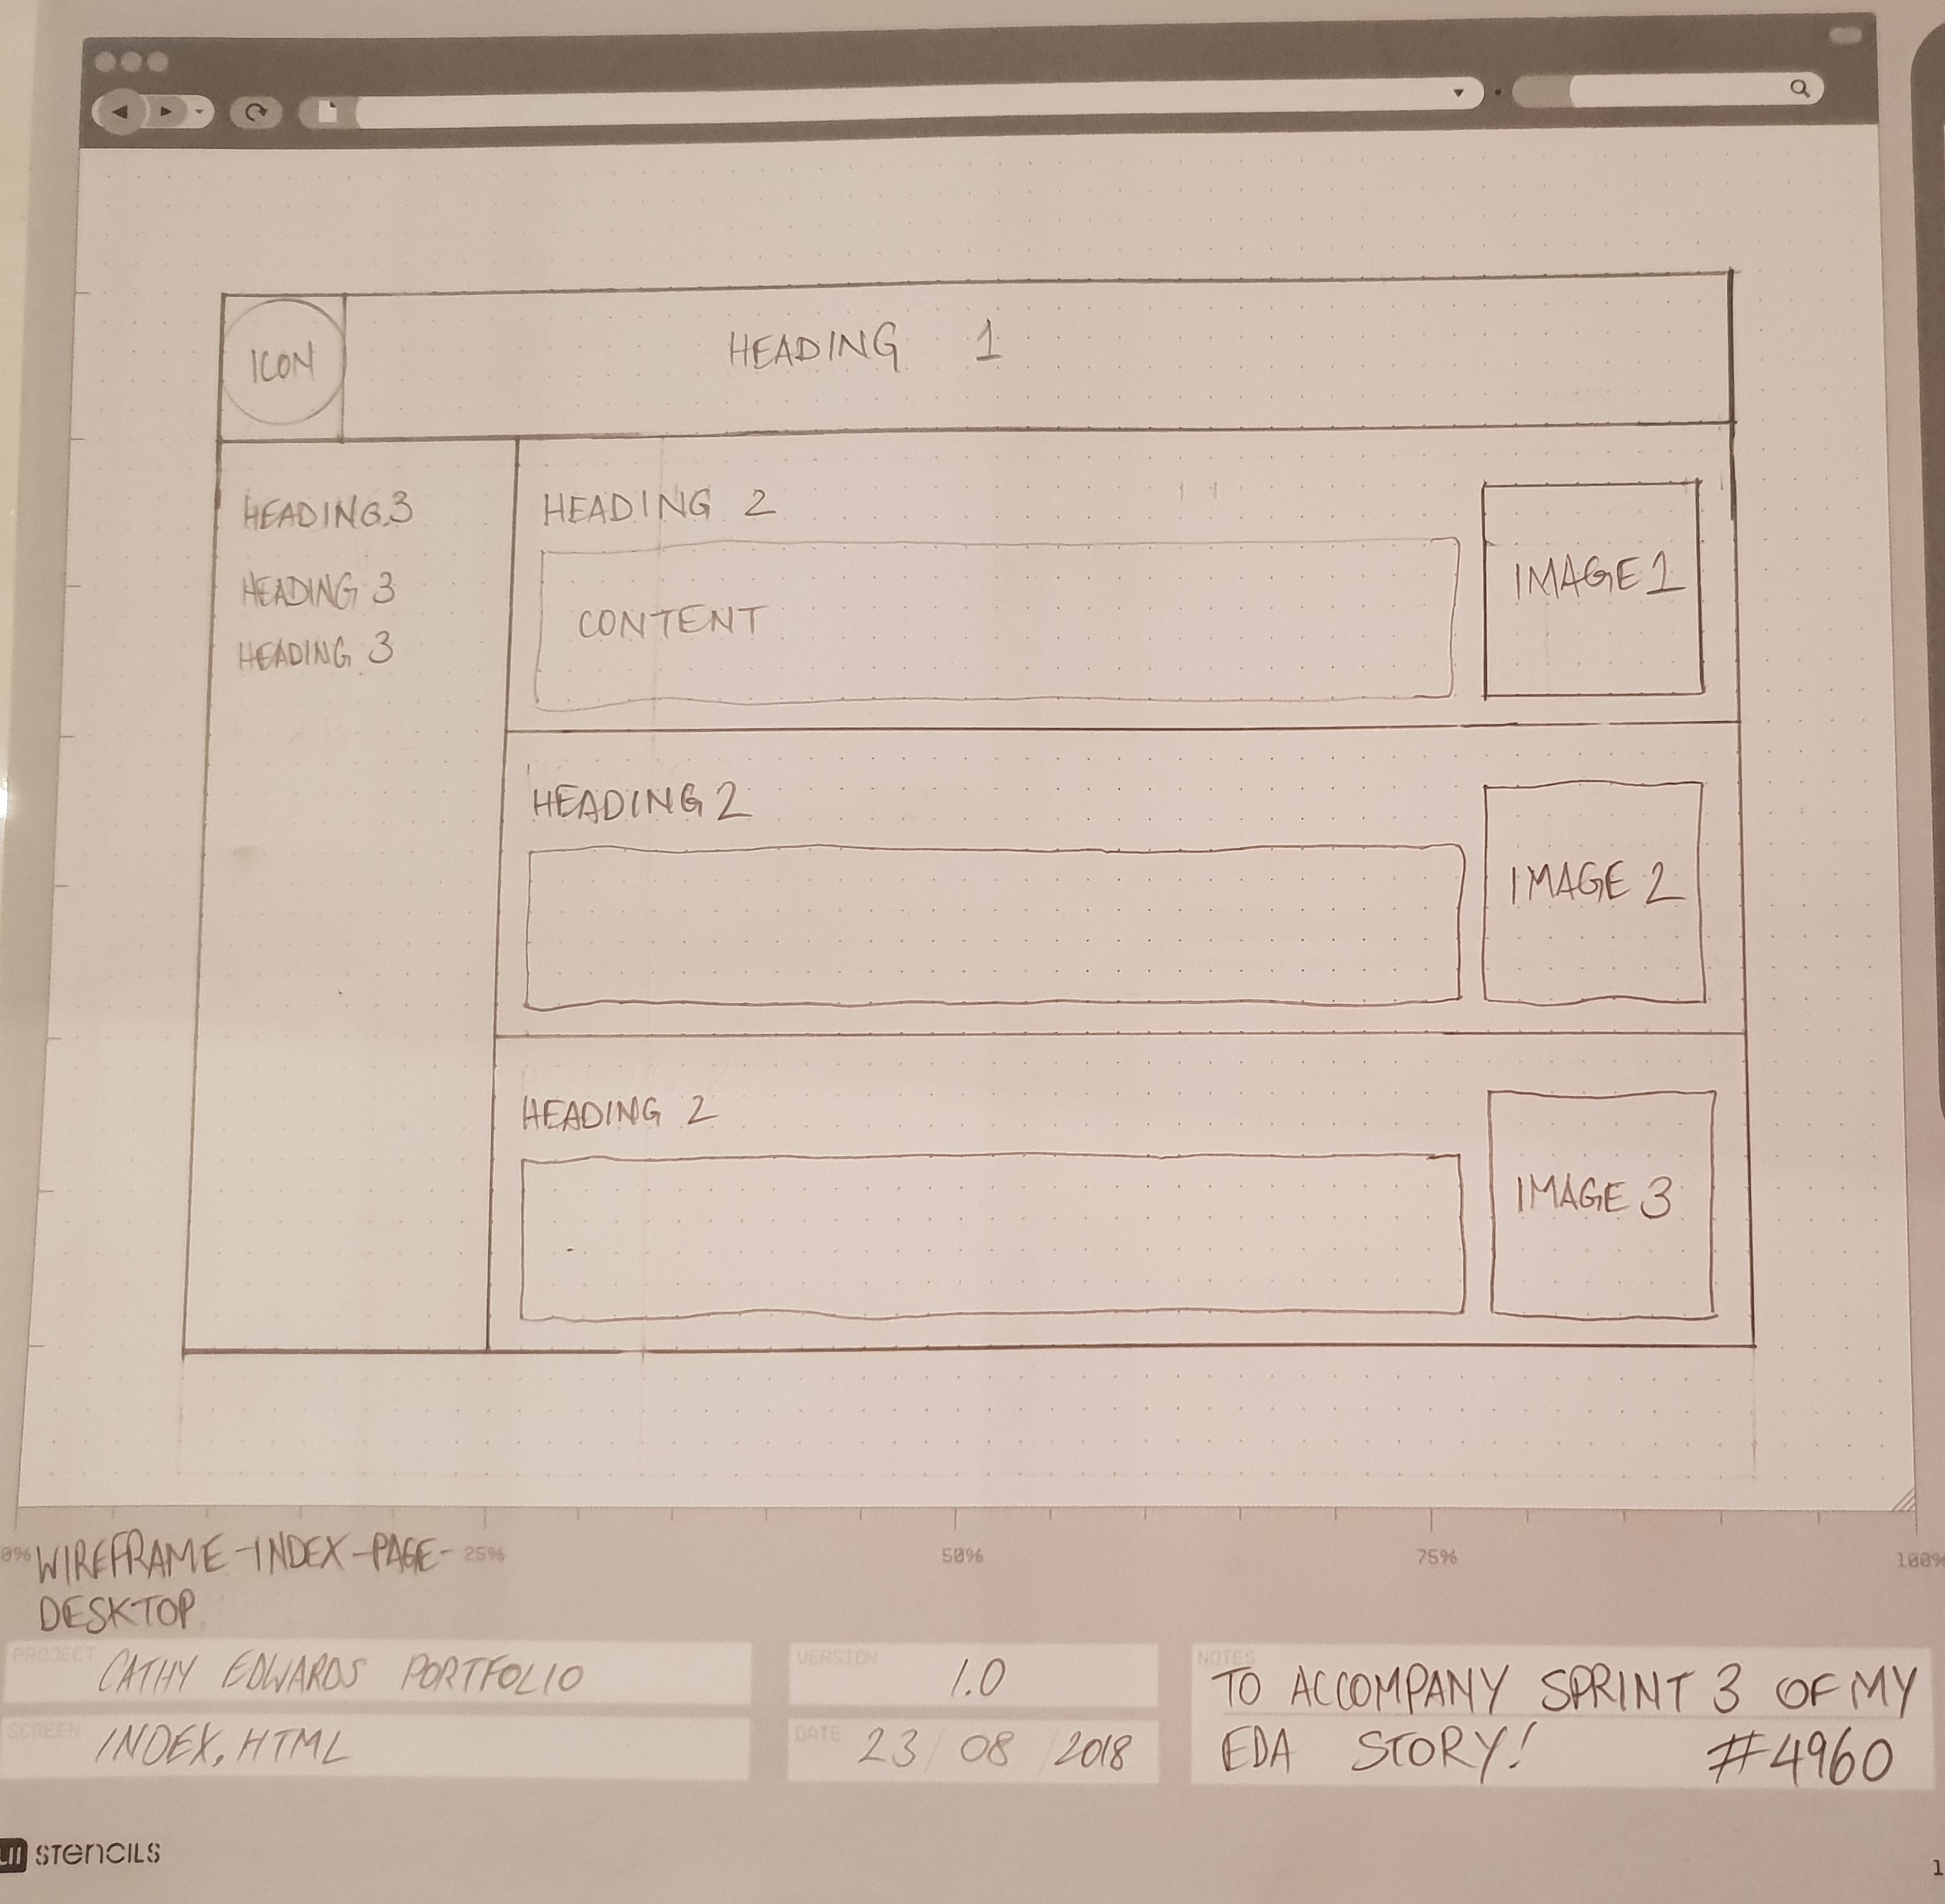 ICON
HEADING 1
HEADING 3
HEADING 3
HEADING 3
HEADING 2
CONTENT
IMAGE 1
HEADING 2
IMAGE 2
HEADING 2
IMAGE 3
0% 25% 50% 75% 100%
WIREFRAME-INDEX-PAGE-
DESKTOP.
PROJECT CATHY EDWARDS PORTFOLIO
SCREEN INDEX.HTML
VERSION 1.0
DATE 23/08/2018
NOTES
TO ACCOMPANY SPRINT 3 OF MY
EDA STORY! #4960
UI STENCILS
1